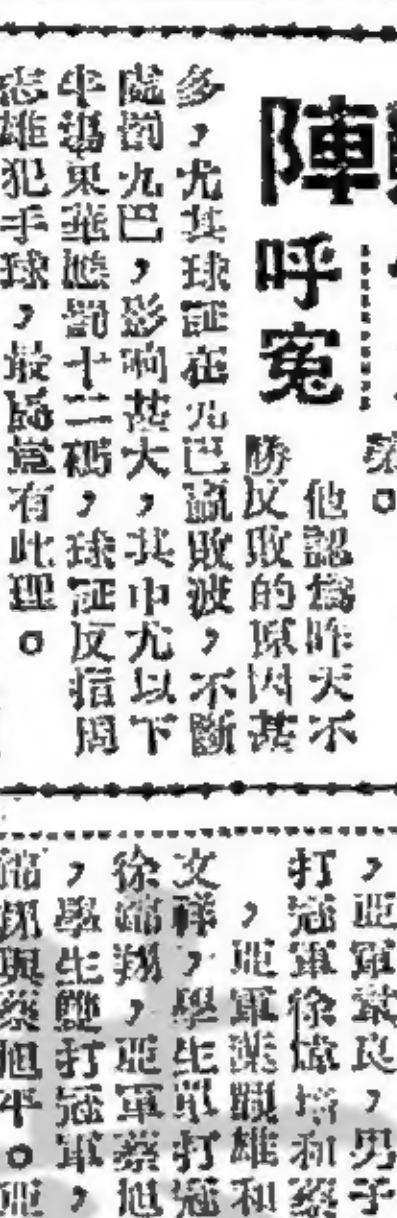 陣呼寃
他認爲昨天不
勝反敗的原因甚
多，尤其球証在九巴贏敗波，不斷
處罰九巴，影响甚大，其中尤以下
半場東華應罰十二碼，球証反指周
志雄犯手球，最屬豈有此理。
，亞軍葉良，男子
打冠軍徐煒培和蔡
，亞軍葉觀雄和
文祥，學生單打冠
徐端翔，亞軍蔡旭
，學生雙打冠軍，
端翔與蔡旭平。亞